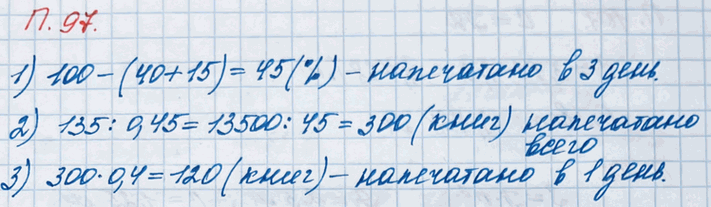 П. 97.
1) 100 - (40+15) = 45 (%) - напечатано в 3 день.
2) 135 : 0,45 = 13500 : 45 = 300 (книг) напечатано
всего
3) 300 · 0,4 = 120 (книг) - напечатано в 1 день.